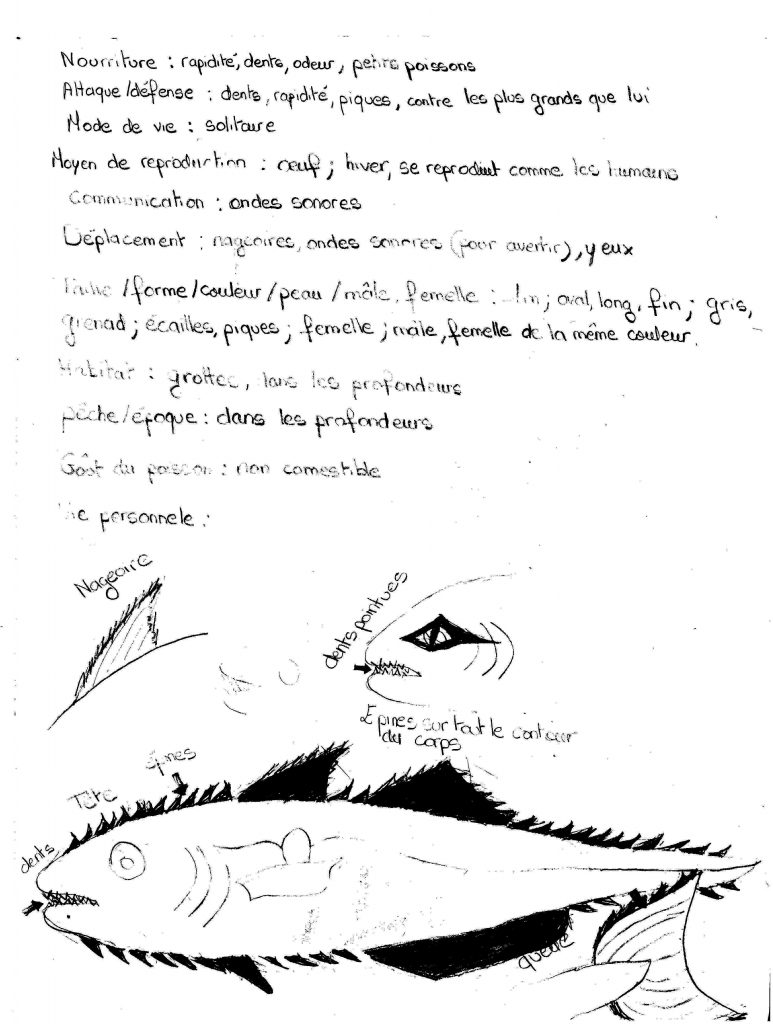 Nourriture : rapidité, dents, odeur, petits poissons
Attaque/défense : dents, rapidité, piques, contre les plus grands que lui
Mode de vie : solitaire
Moyen de reproduction : œuf ; hiver, se reproduit comme les humains
Communication : ondes sonores
Déplacement : nageoires, ondes sonores (pour avertir), yeux
/forme/couleur/peau/mâle, femelle : ; oval, long, fin ; gris,
grenad ; écailles, piques ; femelle ; mâle, femelle de la même couleur.
Habitat : grottes, dans les profondeurs
pêche/époque : dans les profondeurs
Goût du poisson : non comestible
Vie personnele :
Nageoire
dents pointues
Epines sur tout le contour
du corps
épines
Tête
dents
queue